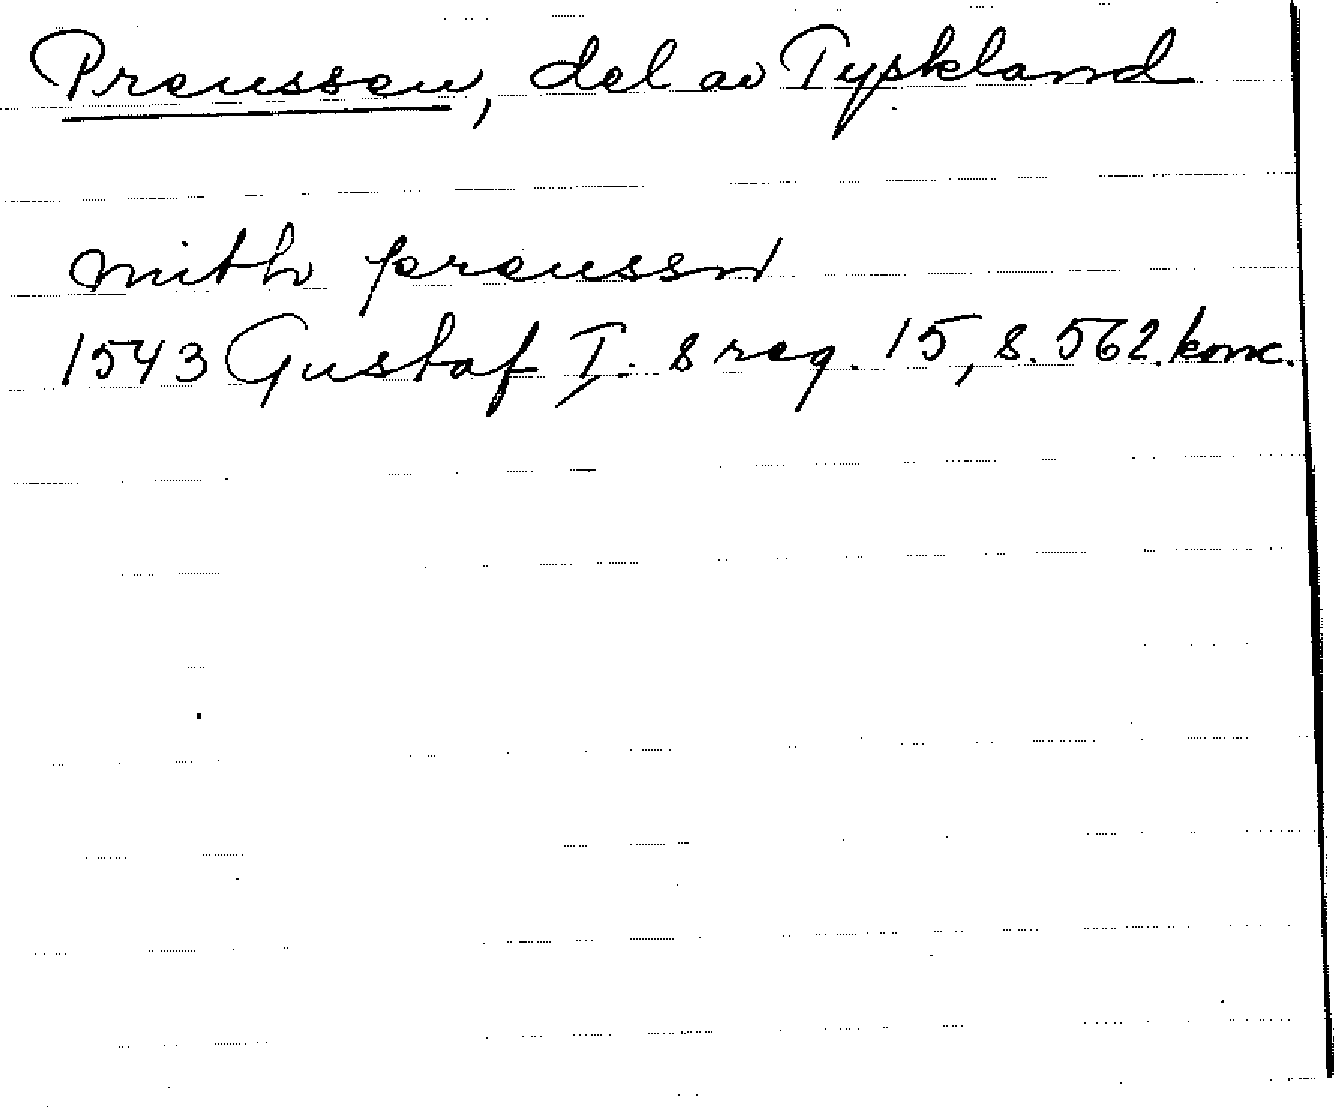 Preussen, del av Tyskland
mith preussn
1543 Gustaf I. s reg. 15, s. 562. konc.